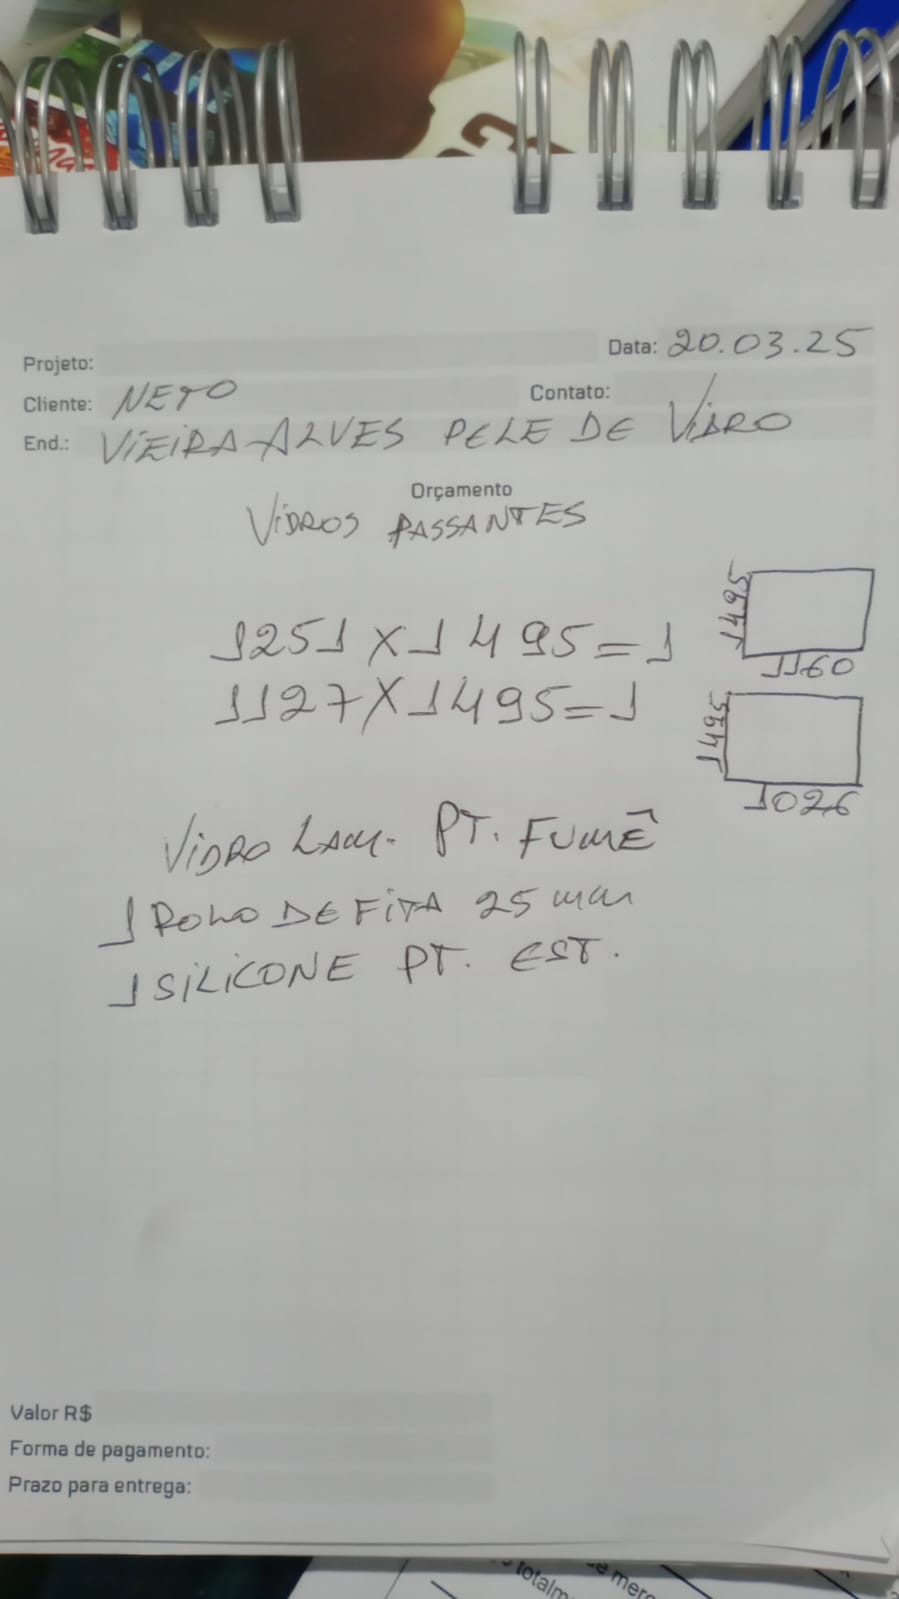 Projeto:
Data: 20.03.25
Cliente: NETO
Contato:
End.: VIEIRA ALVES PELE DE VIDRO
Orçamento
VIDROS PASSANTES
1251 X 1495 = 1
1127 X 1495 = 1
1495
1160
1495
1026
VIDRO LAM. PT. FUMÊ
1 ROLO DE FITA 25 mm
1 SILICONE PT. EST.
Valor R$
Forma de pagamento:
Prazo para entrega:
totalm
de merc